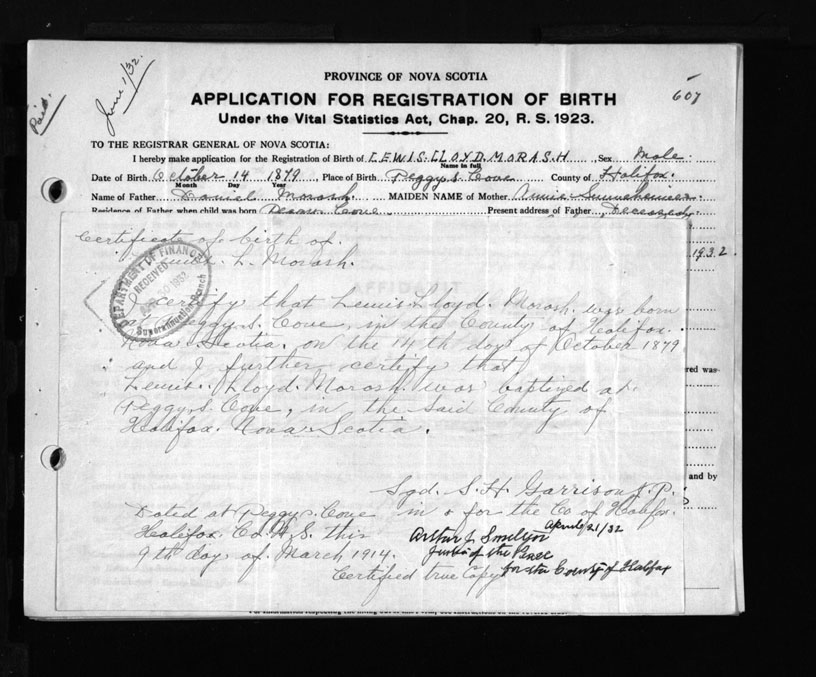 Paid.
June 1/32.
607
PROVINCE OF NOVA SCOTIA
APPLICATION FOR REGISTRATION OF BIRTH
Under the Vital Statistics Act, Chap. 20, R. S. 1923.
TO THE REGISTRAR GENERAL OF NOVA SCOTIA:
I hereby make application for the Registration of Birth of LEWIS. LLOYD. MORASH Sex Male.
Name in full
Date of Birth October 14 1879 Place of Birth Peggy,s, Cove County of Halifax.
Month Day Year
Name of Father Daniel Morash. MAIDEN NAME of Mother Annie
Residence of Father when child was born Cove Present address of Father, Deceased.
Certificate of birth of.
L. Morash.
1932
DEPARTMENT OF FINANCE
RECEIVED
30 1932
Superannuation Branch
AFFIDAVIT
I certify that Lewis Lloyd. Morash. was born
at Peggy,s. Cove, in the County of Halifax.
Nova Scotia. on the 14th day of October 1879
and I further certify that
Lewis. Lloyd. Morash. was baptized at
Peggy,s. Cove, in the said County of
Halifax. Nova Scotia.
red was
and by
Sgd. S. H. Garrison J. P.
Dated at Peggy,s. Cove in & for the Co of Halifax.
Halifax. Co. N.S. this
9th day of March 1914.
Arthur J April 21/32
Justice of the Peace
Certified true Copy for the County of Halifax